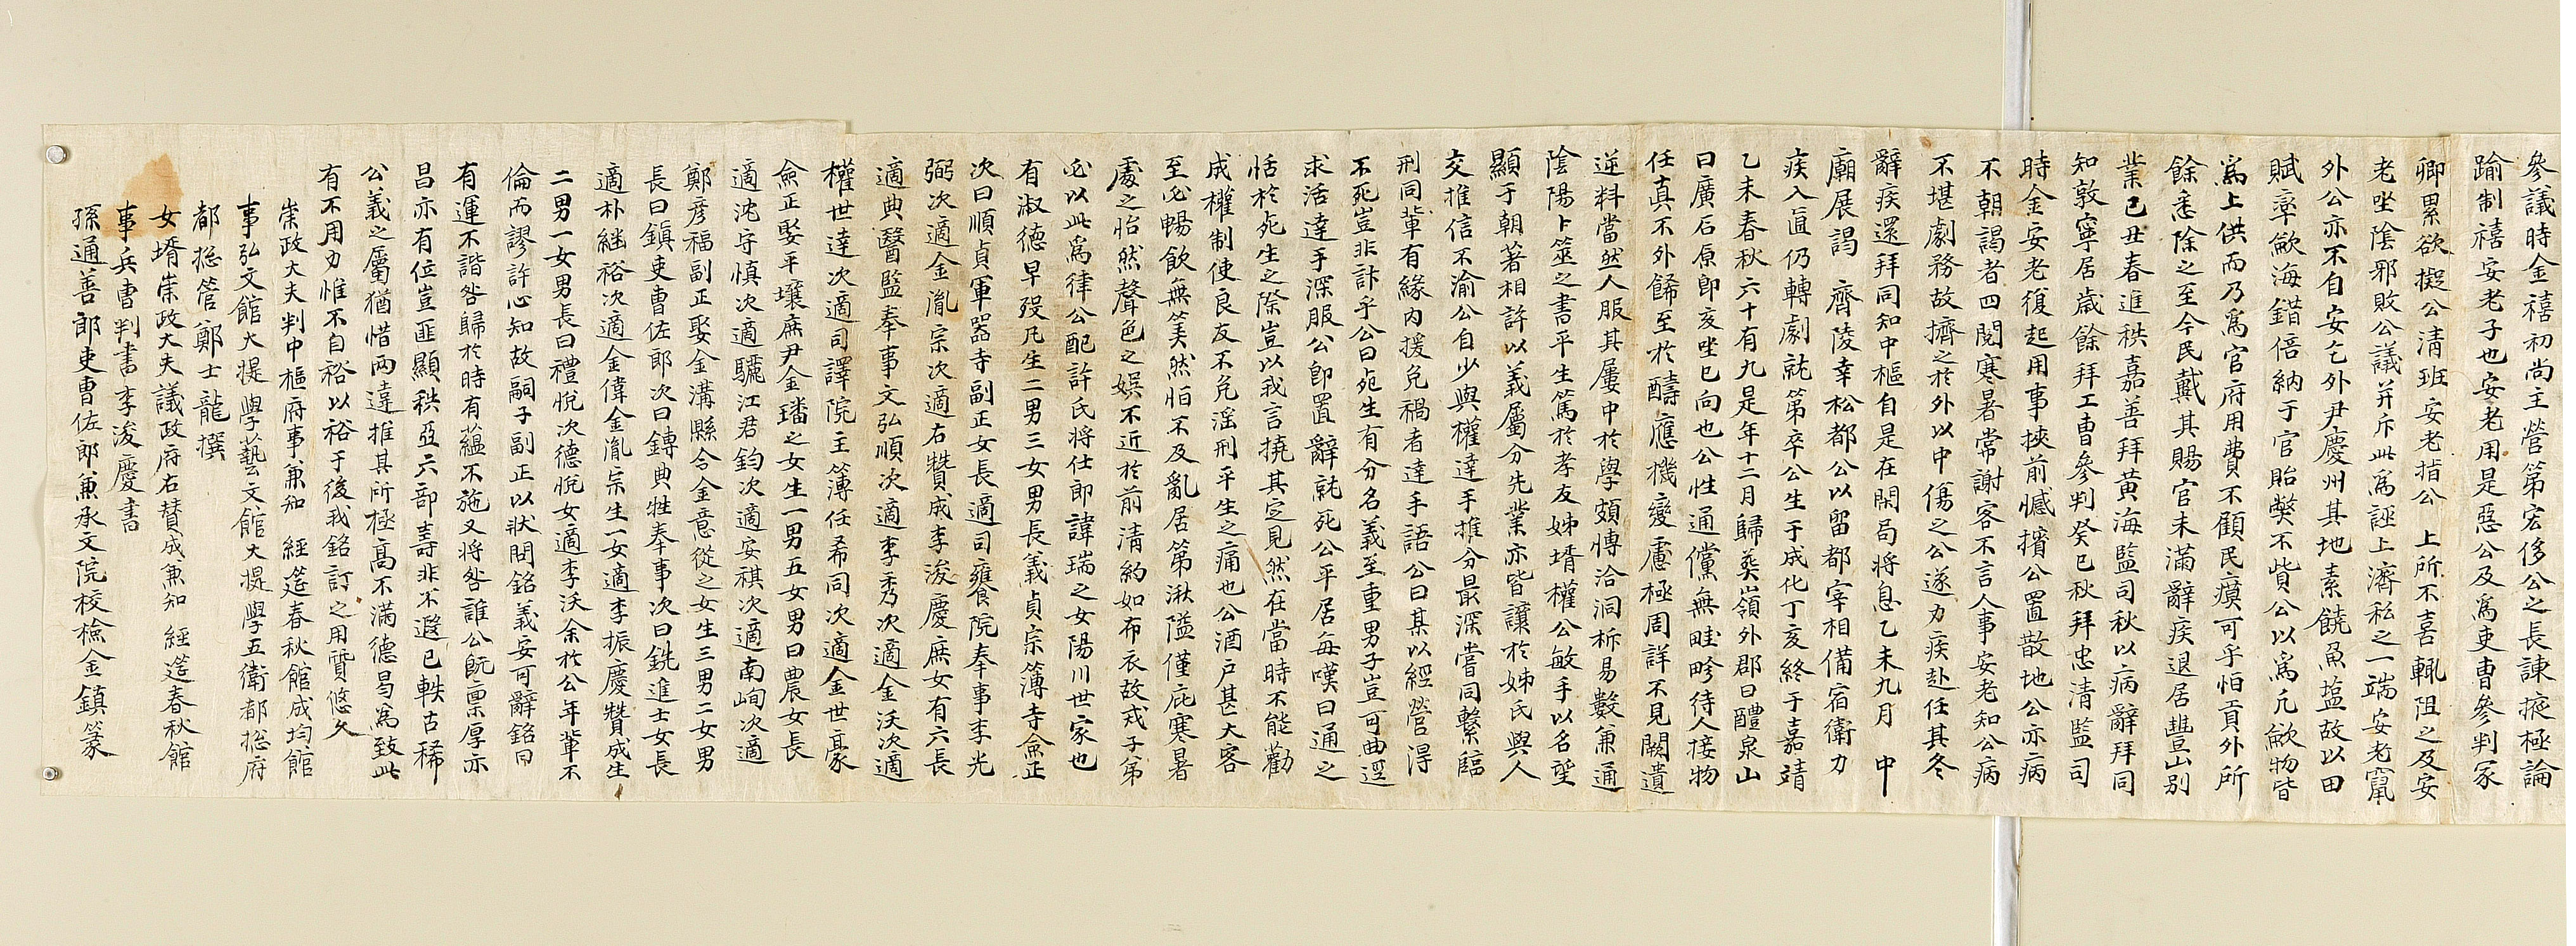 參議時金禧初尚主營第宏侈公之長諫掖極論
踰制禧安老子也安老用是惡公及爲吏曹參判冢
卿累欲擬公清班安老指公 上所不喜輒阻之及安
老坐陰邪敗公議并斥此爲誣上濟私之一端安老竄
外公亦不自安乞外尹慶州其地素饒魚塩故以田
賦率歛海錯倍納于官貽獘不貲公以爲凡歛物皆
爲上供而乃爲官府用費不顧民瘼可乎怕貢外所
餘悉除之至今民戴其賜官未滿辭疾退居豐山別
業己丑春進秩嘉善拜黃海監司秋以病辭拜同
知敦寧居歲餘拜工曹參判癸巳秋拜忠清監司
時金安老復起用事挾前憾擯公置散地公亦病
不朝謁者四閱寒暑常謝客不言人事安老知公病
不堪劇務故擠之於外以中傷之公遂力疾赴任其冬
辭疾還拜同知中樞自是在閑局將息乙未九月 中
廟展謁 齊陵幸松都公以留都宰相備宿衛力
疾入直仍轉劇就第卒公生于成化丁亥終于嘉靖
乙未春秋六十有九是年十二月歸葬嶺外郡曰醴泉山
曰廣石原即亥坐巳向也公性通儻無畦畛待人接物
任真不外餙至於醻應機變慮極周詳不見闕遺
逆料當然人服其屢中於學頗慱洽洞柝易數兼通
陰陽卜筮之書平生篤於孝友姊壻權公敏手以名望
顯于朝著相許以義屬分先業亦皆讓於姊氏與人
交推信不渝公自少與權達手推分最深嘗同繫臨
刑同輩有緣內援免禍者達手語公曰某以經營得
不死豈非計乎公曰死生有分名義至重男子豈可曲逕
求活達手深服公卽置辭就死公平居每嘆曰通之
恬於死生之際豈以我言撓其定見然在當時不能勸
成權制使良友不免滛刑平生之痛也公酒戶甚大客
至必暢飲無筭然怕不及亂居第湫隘僅庇寒暑
處之怡然聲色之娯不近於前清約如布衣故戎子第
必以此爲律公配許氏將仕郎諱瑞之女陽川世家也
有淑德早歿凡生二男三女男長義貞宗簿寺僉正
次曰順貞軍器寺副正女長適司饔院奉事李光
弼次適金胤宗次適右贊成李浚慶庶女有六長
適典醫監奉事文弘順次適李秀次適金沃次適
權世達次適司譯院主簿任希同次適金世豪
僉正娶平壤庶尹金璠之女生一男五女男曰農女長
適沈守慎次適驪江君鈞次適安祺次適南峋次適
鄭彦福副正娶金溝縣令金意從之女生三男二女男
長曰鎭吏曹佐郎次曰鏄典牲奉事次曰銑進士女長
適朴継裕次適金偉金胤宗生一女適李振慶贊成生
二男一女男長曰禮悅次德悅女適李沃余於公年輩不
倫而謬許心知故嗣子副正以狀問銘義安可辭銘曰
有運不諧咎歸於時有蘊不施又將咎誰公旣禀厚亦
昌亦有位豈匪顯秩亞六部壽非不遐已軼古稀
公義之屬猶惜兩違推其所極高不滿德曷爲致此
有不用力惟不自裕以裕于後我銘訂之用質悠久
崇政大夫判中樞府事兼知 經筵春秋館成均館
事弘文館大提學藝文館大提學五衛都揔府
都揔管鄭士龍撰
女壻崇政大夫議政府右贊成兼知 經筵春秋館
事兵曹判書李浚慶書
孫通善郎吏曹佐郎兼承文院校檢金鎭篆